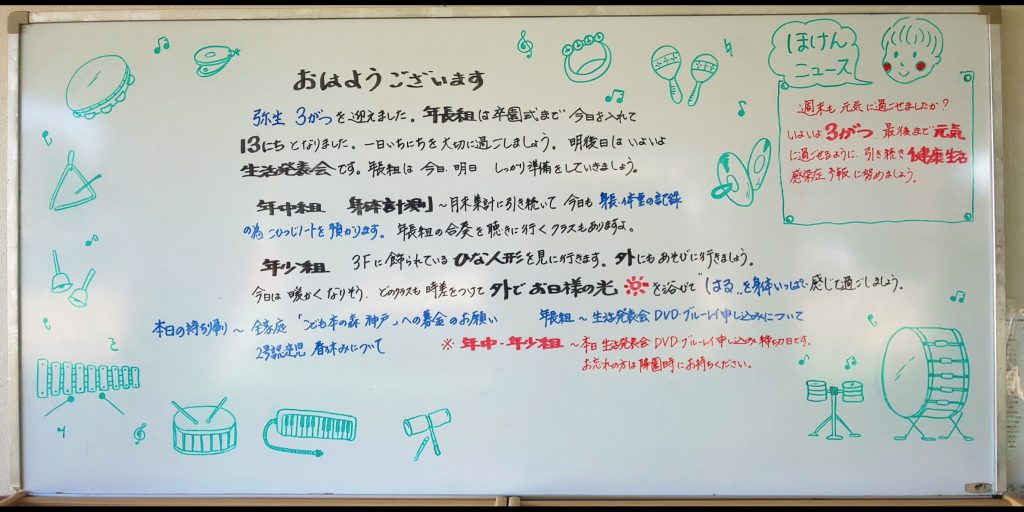 おはようございます
弥生 3がつを迎えました。年長組は卒園式まで 今日を入れて
13にちとなりました。一日いちにちを大切に過ごしましょう。明後日は いよいよ
生活発表会です。年長組は 今日、明日 しっかり準備をしていきましょう。
年中組 身体計測 〜月末集計に引き続いて 今日も 身長・体重の記録
の為 ひつじノートを預かります。年長組の合奏を聴きに行くクラスもありますよ。
年少組 3Fに飾られている ひな人形を見に行きます。外にもあそびに行きましょう。
今日は 暖かくなりそう、どのクラスも 時差をつけて 外で お日様の光 を浴びて "はる"を身体いっぱい 感じて過ごしましょう。
本日の持ち帰り〜 全家庭 「こども本の森 神戸」への募金のお願い 年長組〜生活発表会DVD・ブルーレイ申し込みについて
2号認定児 春休みについて
※年中・年少組〜本日 生活発表会DVD・ブルーレイ申し込み 締切日です。
お忘れの方は 降園時にお持ちください。
ほけん
ニュース
週末も 元気に過ごせましたか?
いよいよ 3がつ 最後まで 元気
に過ごせるように、引き続き 健康生活
感染症予報に努めましょう。